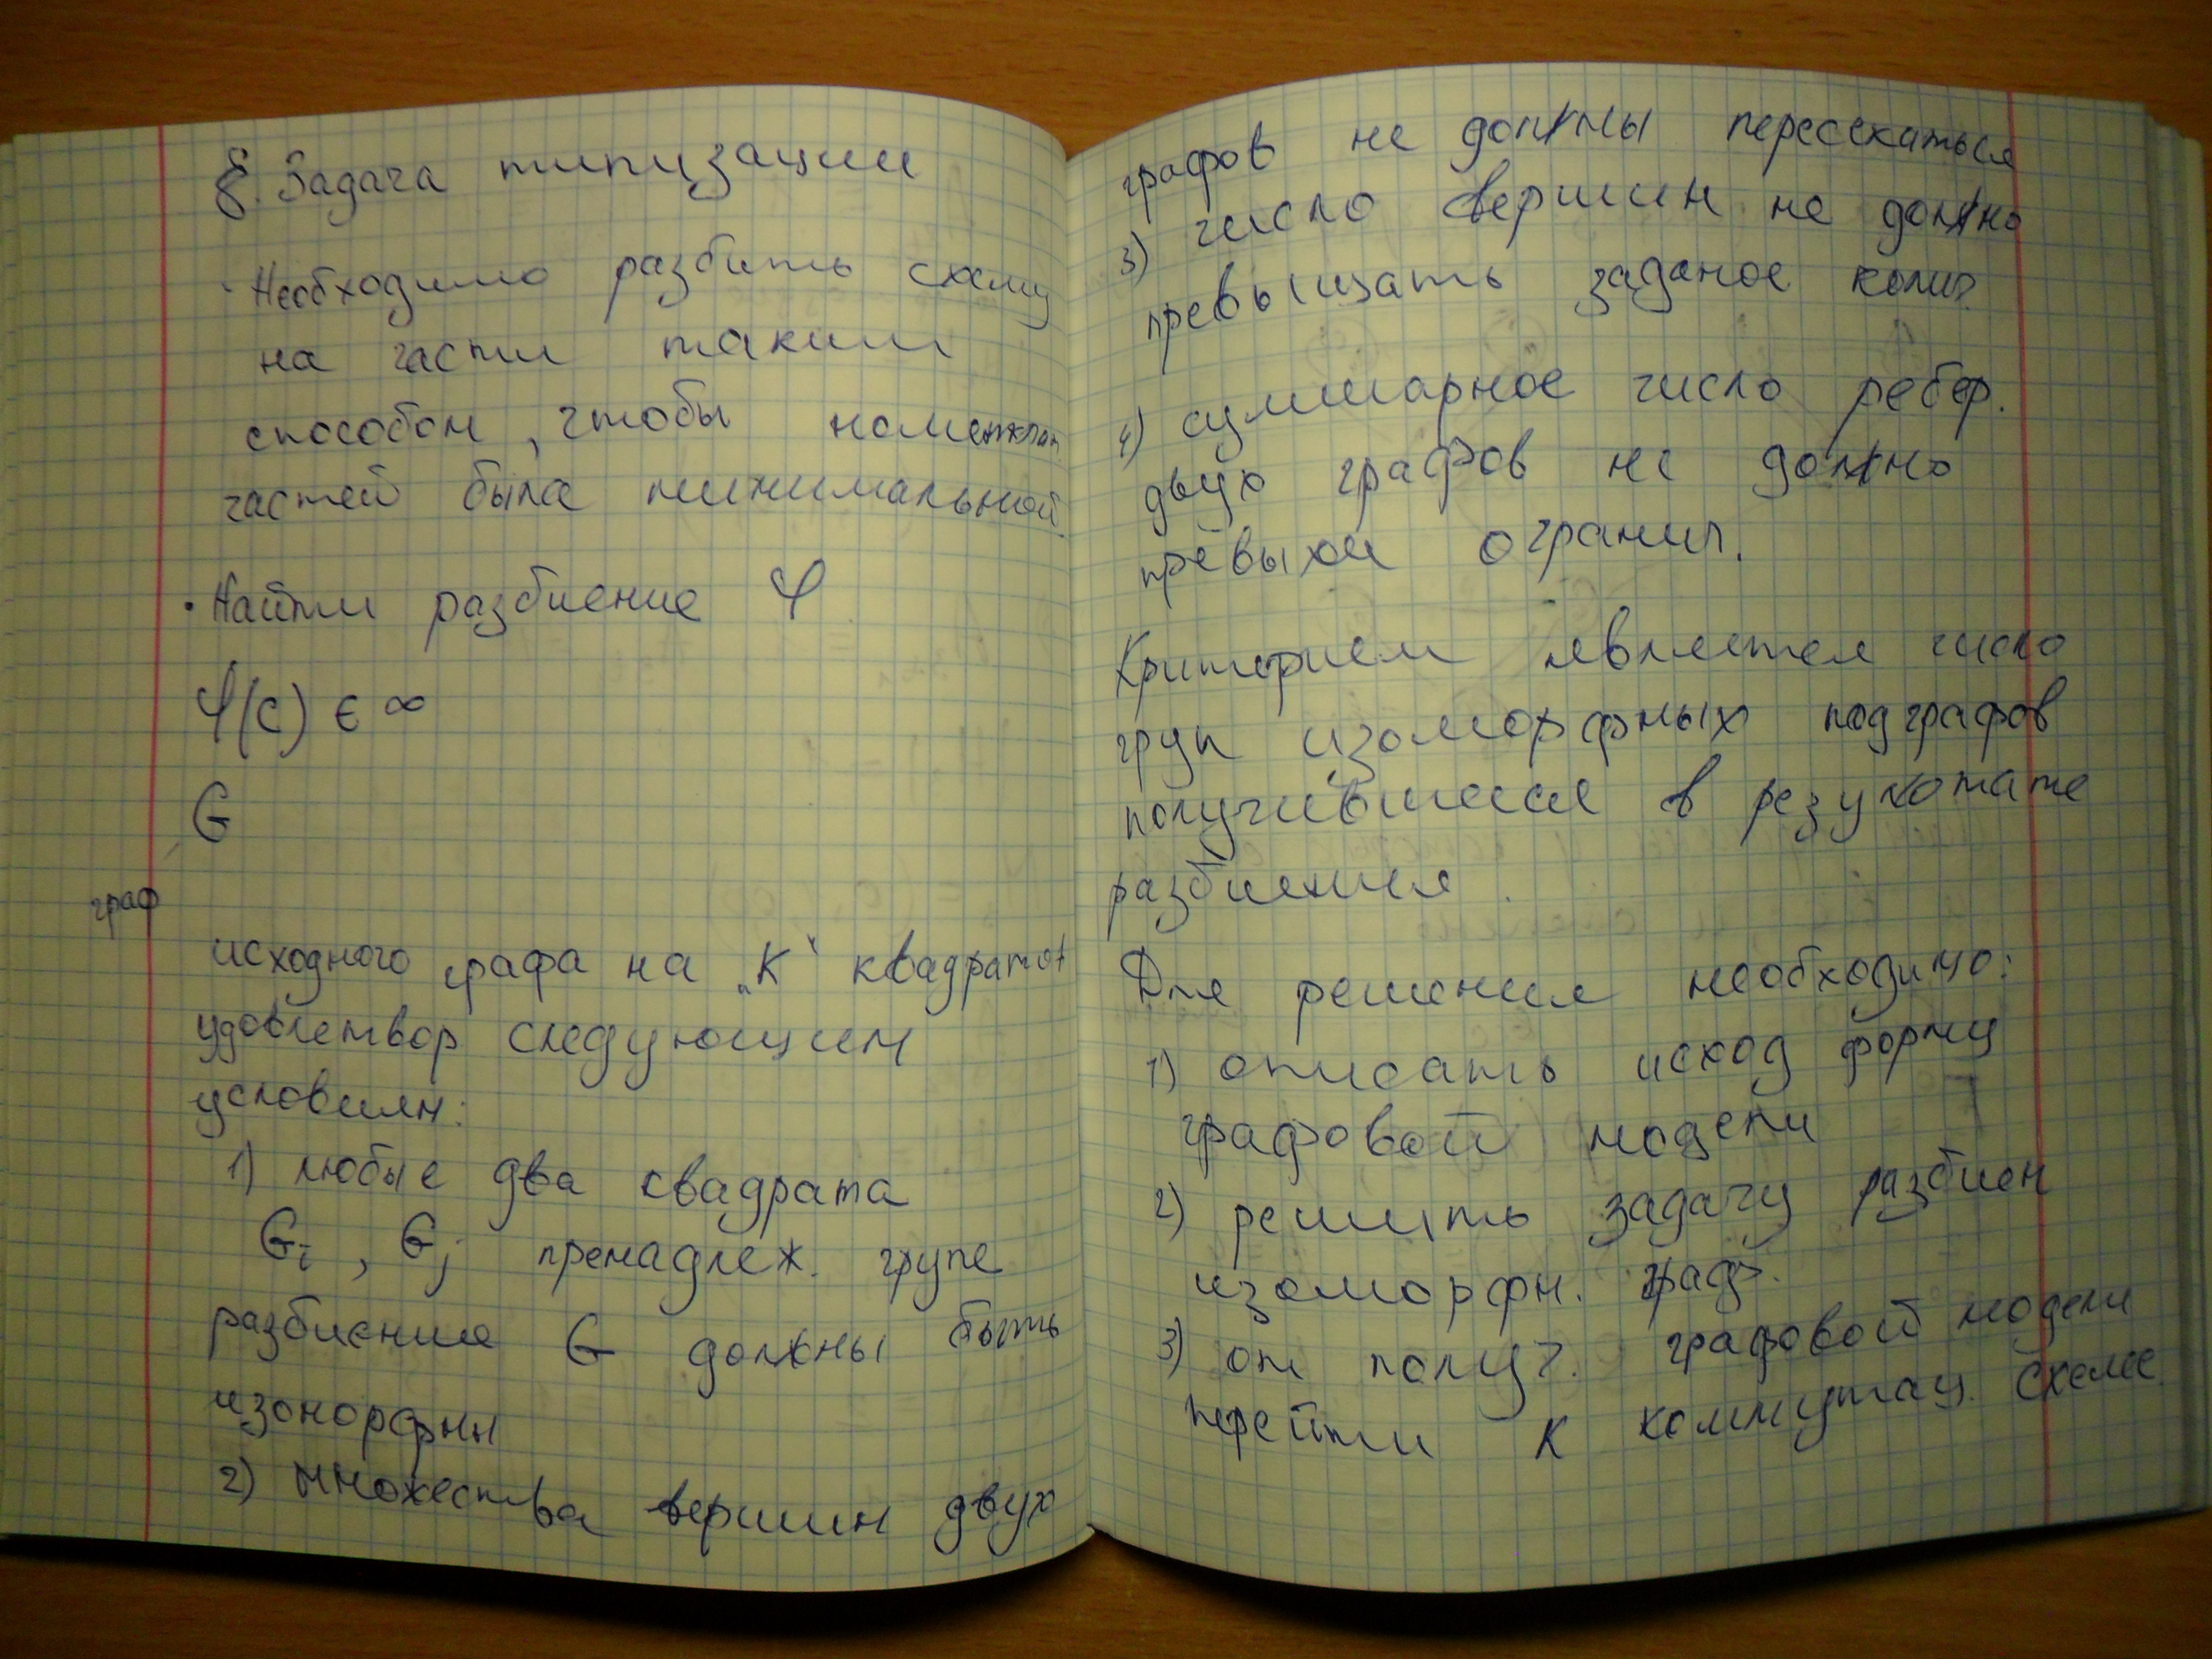 §. Задача типизации
· Необходимо разбить схему
на части таким
способом, чтобы номенклат
частей была минимальной
· Найти разбиение φ
φ(c) ∈ ∞
G
граф
исходного графа на „К“ квадратов
удовлетвор следующим
условиям:
1) любые два квадрата
Gi, Gj пренадлеж. групе
разбиения G должны быть
изоморфны
2) множества вершин двух
графов не должны пересекаться
3) число вершин не должно
превышать заданое колич
4) суммарное число ребер.
двух графов не должно
огранич.
Критерием является число
груп изоморфных подграфов
получившихся в результате
разбиения.
Для решения необходимо:
1) описать исход форму
графовой модели
2) решить задачу разбиен
изоморфн. граф.
3) от получ. графовой модели
перейти к коммутац. схеме